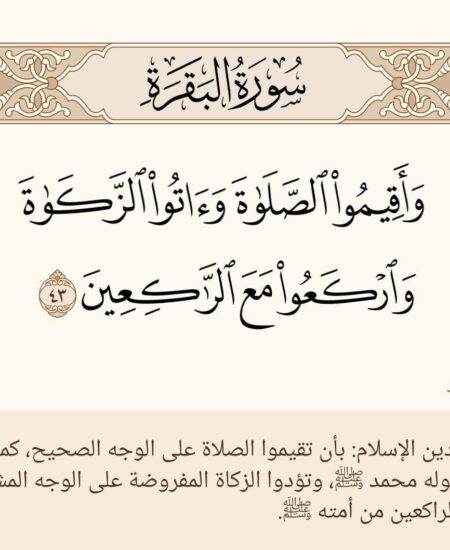 سُورَةُ البَقَرَةِ
وَأَقِيمُوا۟ ٱلصَّلَوٰةَ وَءَاتُوا۟ ٱلزَّكَوٰةَ
وَٱرْكَعُوا۟ مَعَ ٱلرَّٰكِعِينَ ٤٣
دين الإسلام: بأن تقيموا الصلاة على الوجه الصحيح، كم
وله محمد ﷺ، وتؤدوا الزكاة المفروضة على الوجه المش
لراكعين من أمته ﷺ.